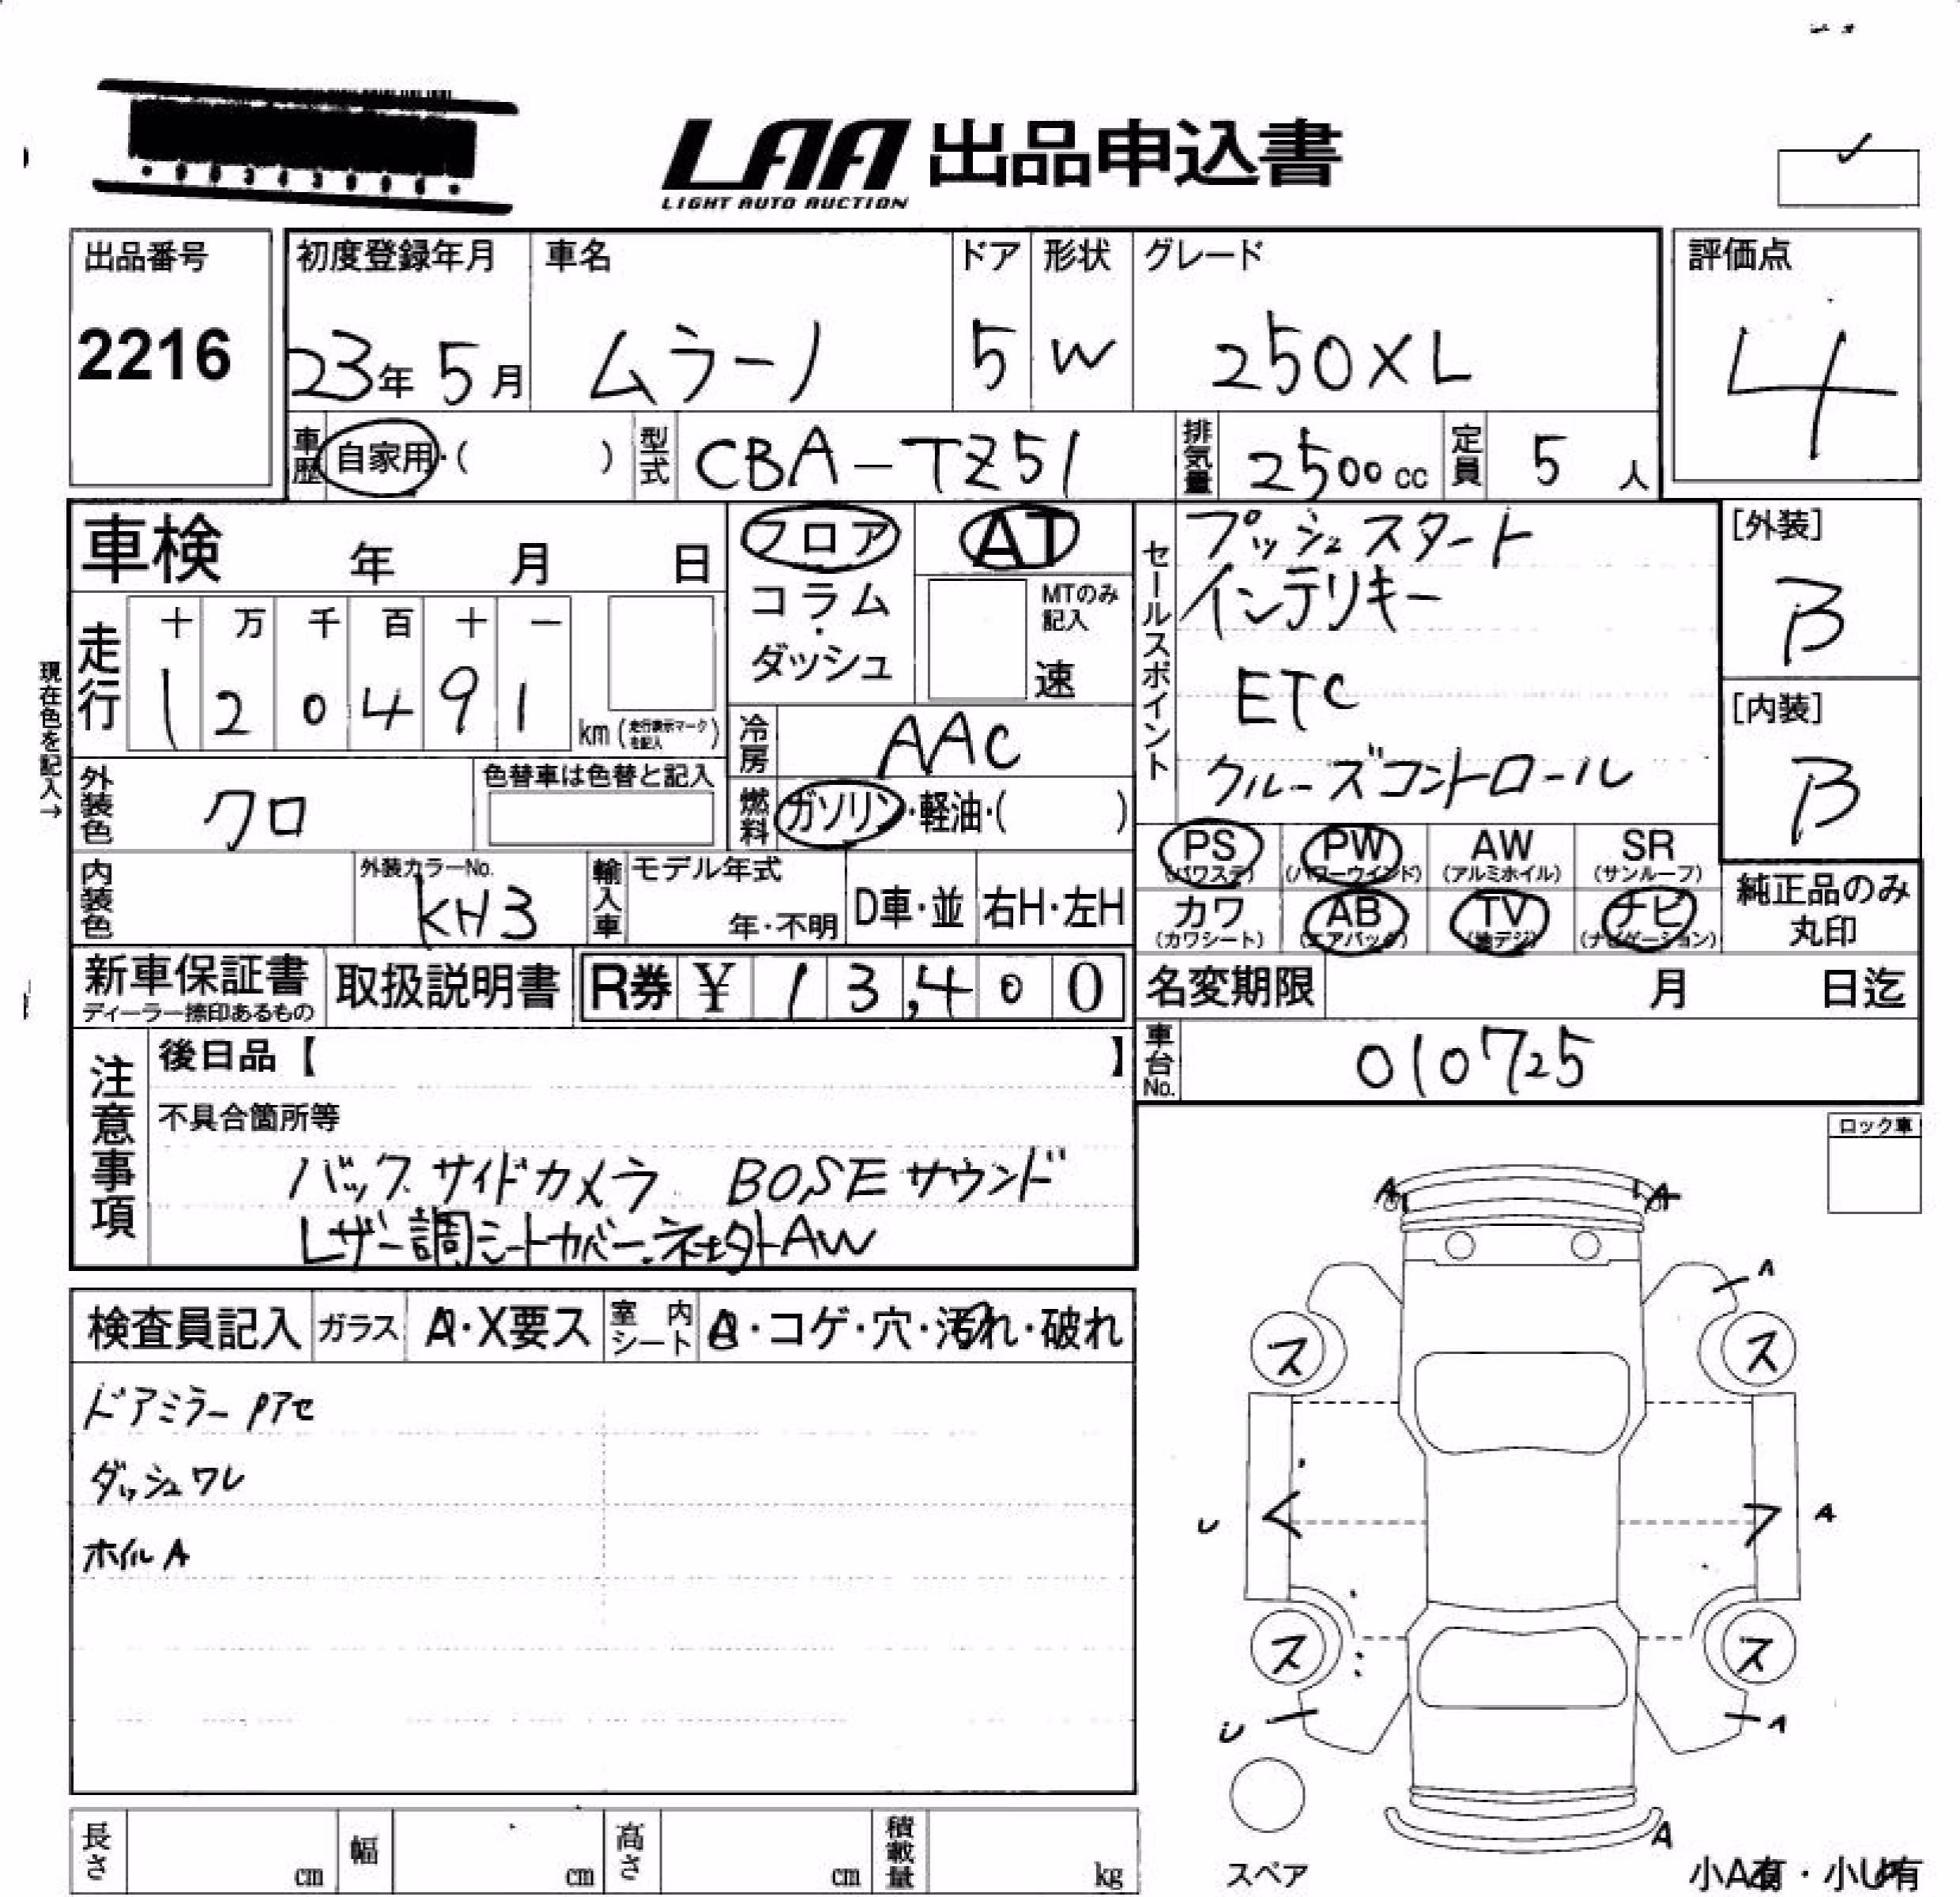 LAA 出品申込書
LIGHT AUTO AUCTION
出品番号
2216
初度登録年月 車名 ドア 形状 グレード
23年 5月 ムラーノ 5 W 250XL
評価点
4
車歴 自家用・( ) 型式 CBA-TZ51 排気量 2500cc 定員 5人
車検 年 月 日
フロア AT
コラム・ダッシュ
MTのみ記入
速
セールスポイント
プッシュスタート
インテリキー
ETC
クルーズコントロール
[外装]
B
[内装]
B
現在色を記入→
走行 十 万 千 百 十 一
1 2 0 4 9 1
km(走行表示マークを記入)
冷房 AAC
外装色 クロ
色替車は色替と記入
燃料 ガソリン・軽油・( )
PS PW AW SR
(パワステ) (パワーウインド) (アルミホイル) (サンルーフ)
カワ AB TV ナビ
(カワシート) (エアバック) (地デジ) (ナビゲーション)
純正品のみ
丸印
内装色 外装カラーNo.
KH3
輸入車 モデル年式
年・不明 D車・並 右H・左H
新車保証書 取扱説明書 R券 ¥ 13,400
ディーラー捺印あるもの
名変期限 月 日迄
車台No. 010725
注意事項
後日品【 】
不具合箇所等
バックサイドカメラ BOSEサウンド
レザー調シートカバー.社外AW
ロック車
検査員記入 ガラス A・X要ス 室内シート ・コゲ・穴・汚れ・破れ
ドアミラーPアセ
ダッシュワレ
ホイルA
A A
A
ス ス
U A
ス ス
U A
A
スペア
小A有・小U有
長さ cm 幅 cm 高さ cm 積載量 kg